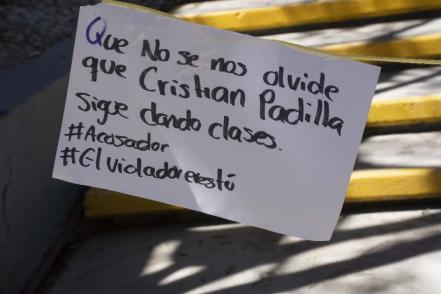 Que No se nos olvide
que Cristian Padilla
sigue dando clases.
#Acosador
#Elvioladorerestú